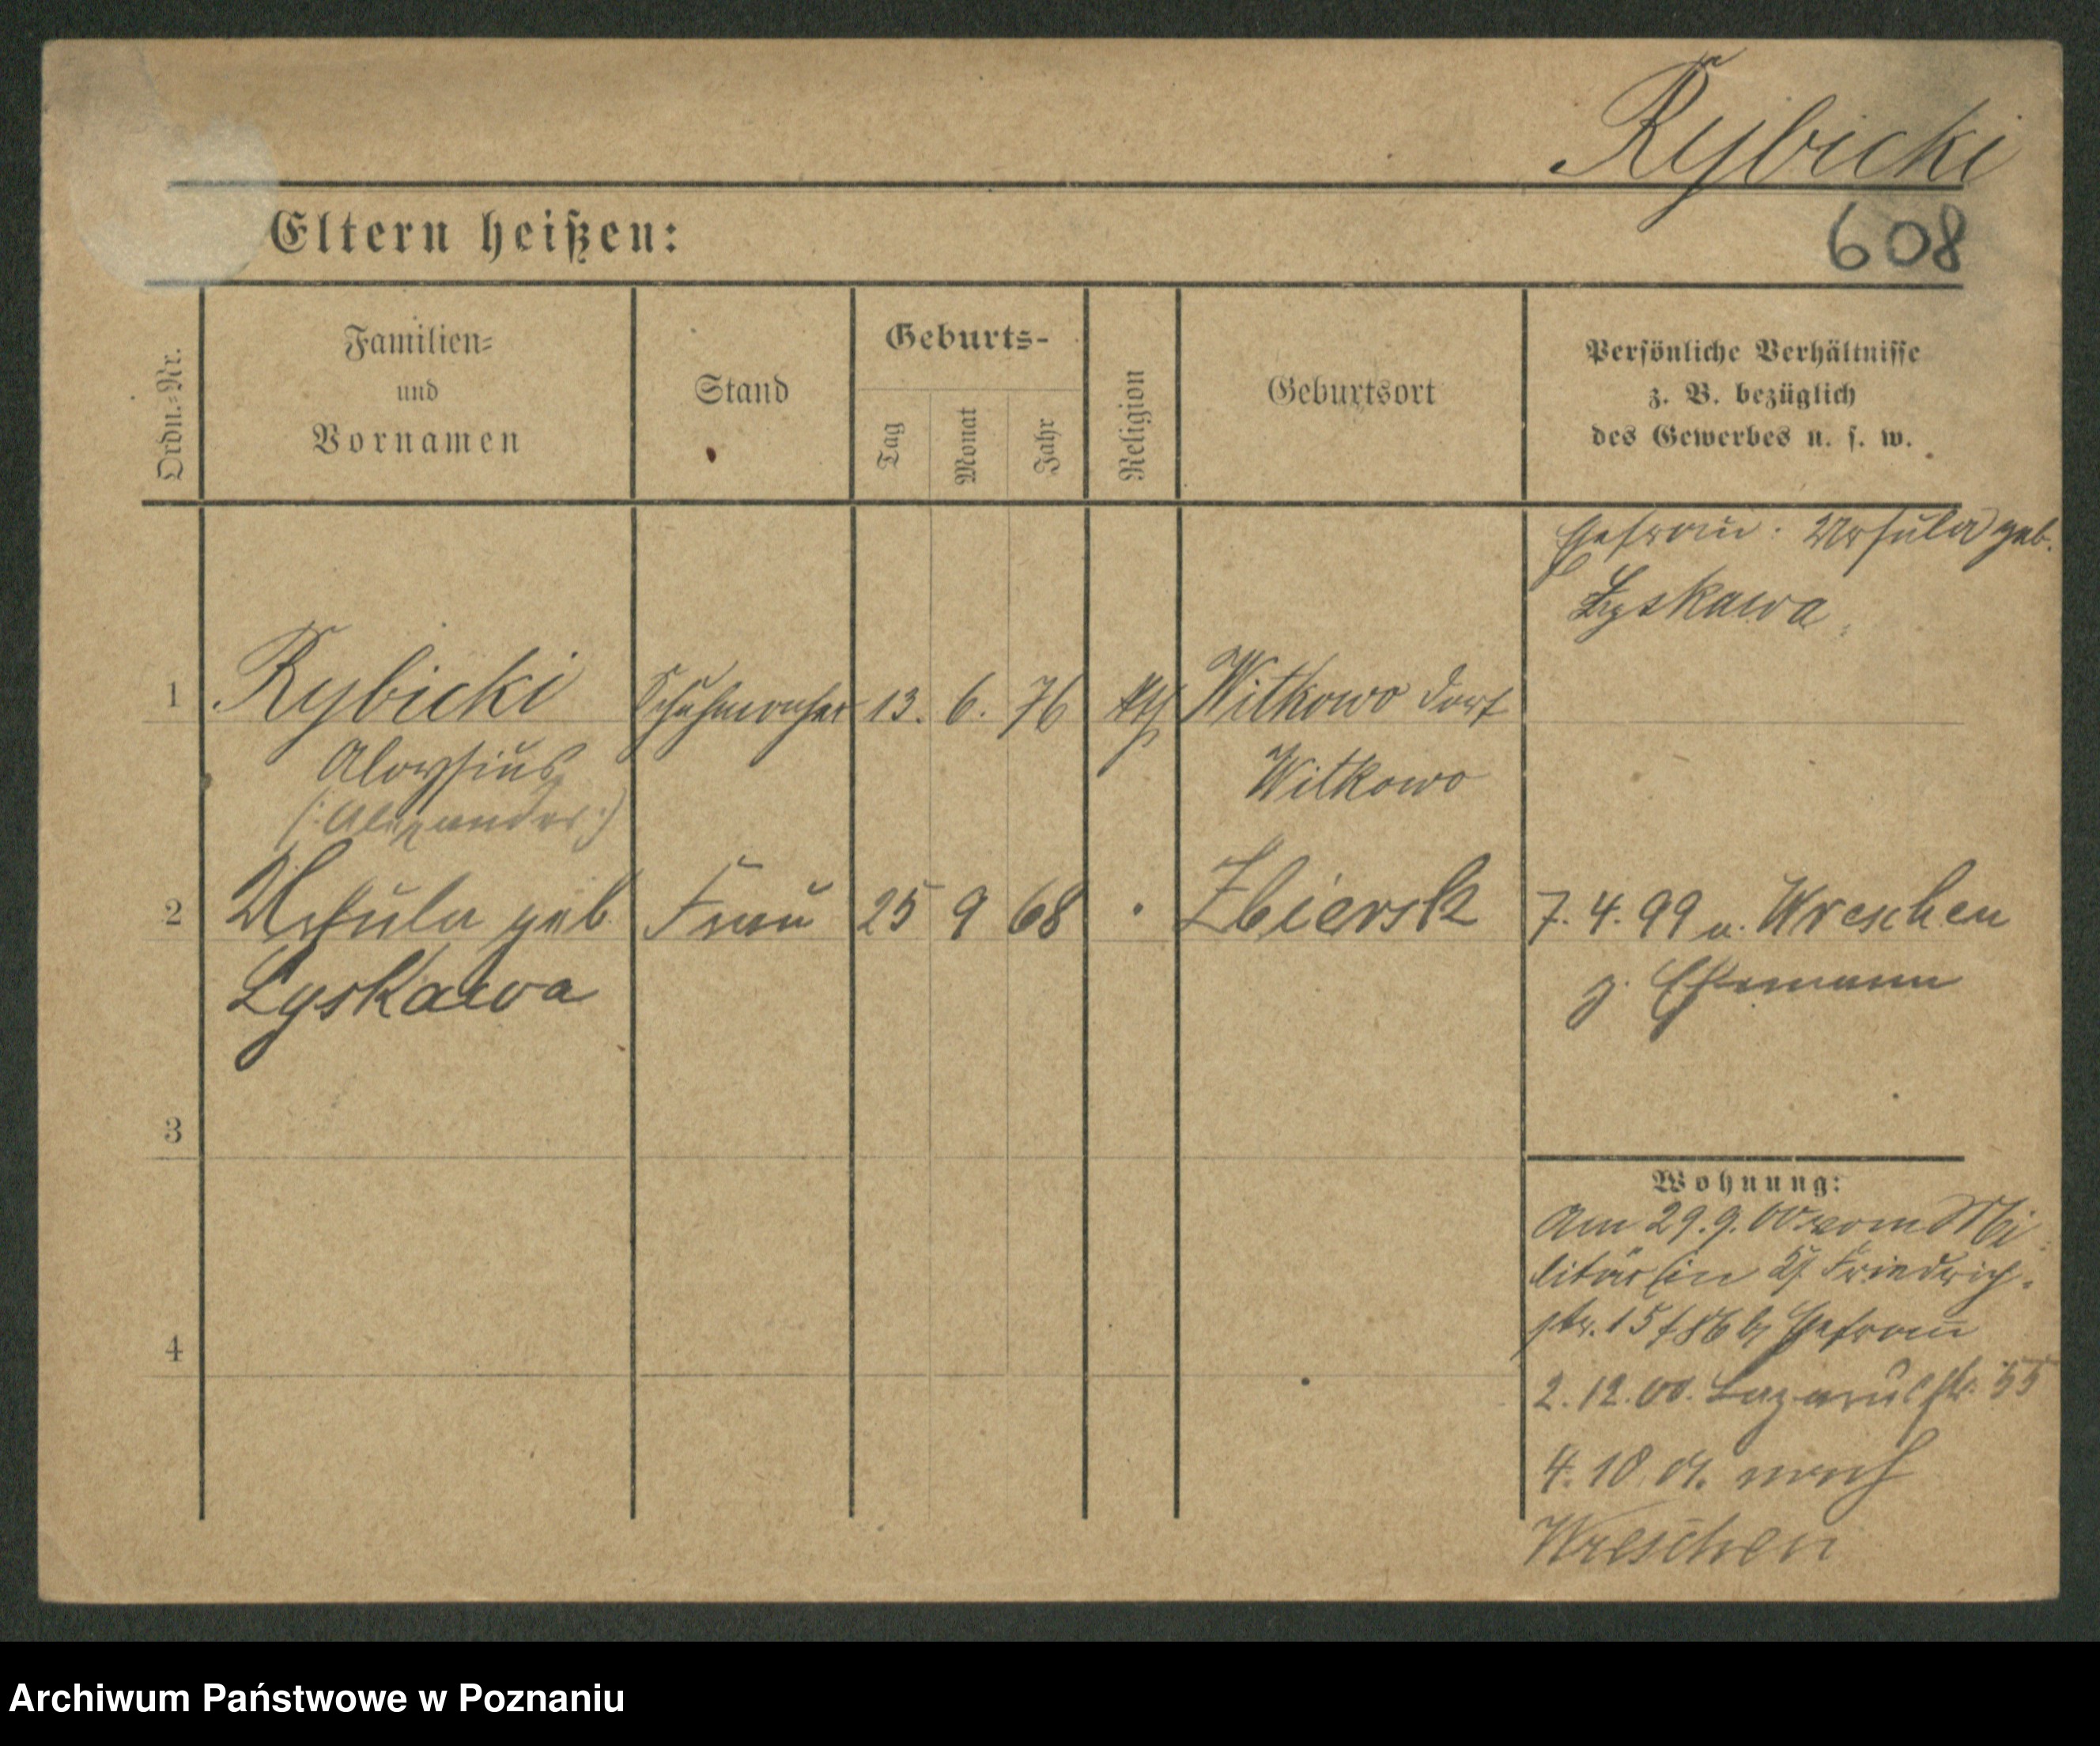 Rybicki
Eltern heißen:
608
Ordn.=Nr.
Familien=
und
Vornamen
Stand
Geburts-
Tag
Monat
Jahr
Religion
Geburtsort
Persönliche Verhältnisse
z. B. bezüglich
des Gewerbes u. s. w.
Ehefrau: Ursula geb.
Lyskawa
1 Rybicki Schuhmacher 13. 6. 76 kth Witkowo Dorf
Aloysius Witkowo
(: Alexander :)
2 Ursula geb. Frau 25 9 68 Zbiersk 7. 4. 99 v. Wreschen
Lyskawa z. Ehemann
3
4
Wohnung:
Am 29. 9. 00 vom Mi
litär in Friedrich-
str. 15 Ehefrau
2. 12. 00. Lazarusstr. 55
4. 10. 01. nach
Wreschen
Archiwum Państwowe w Poznaniu